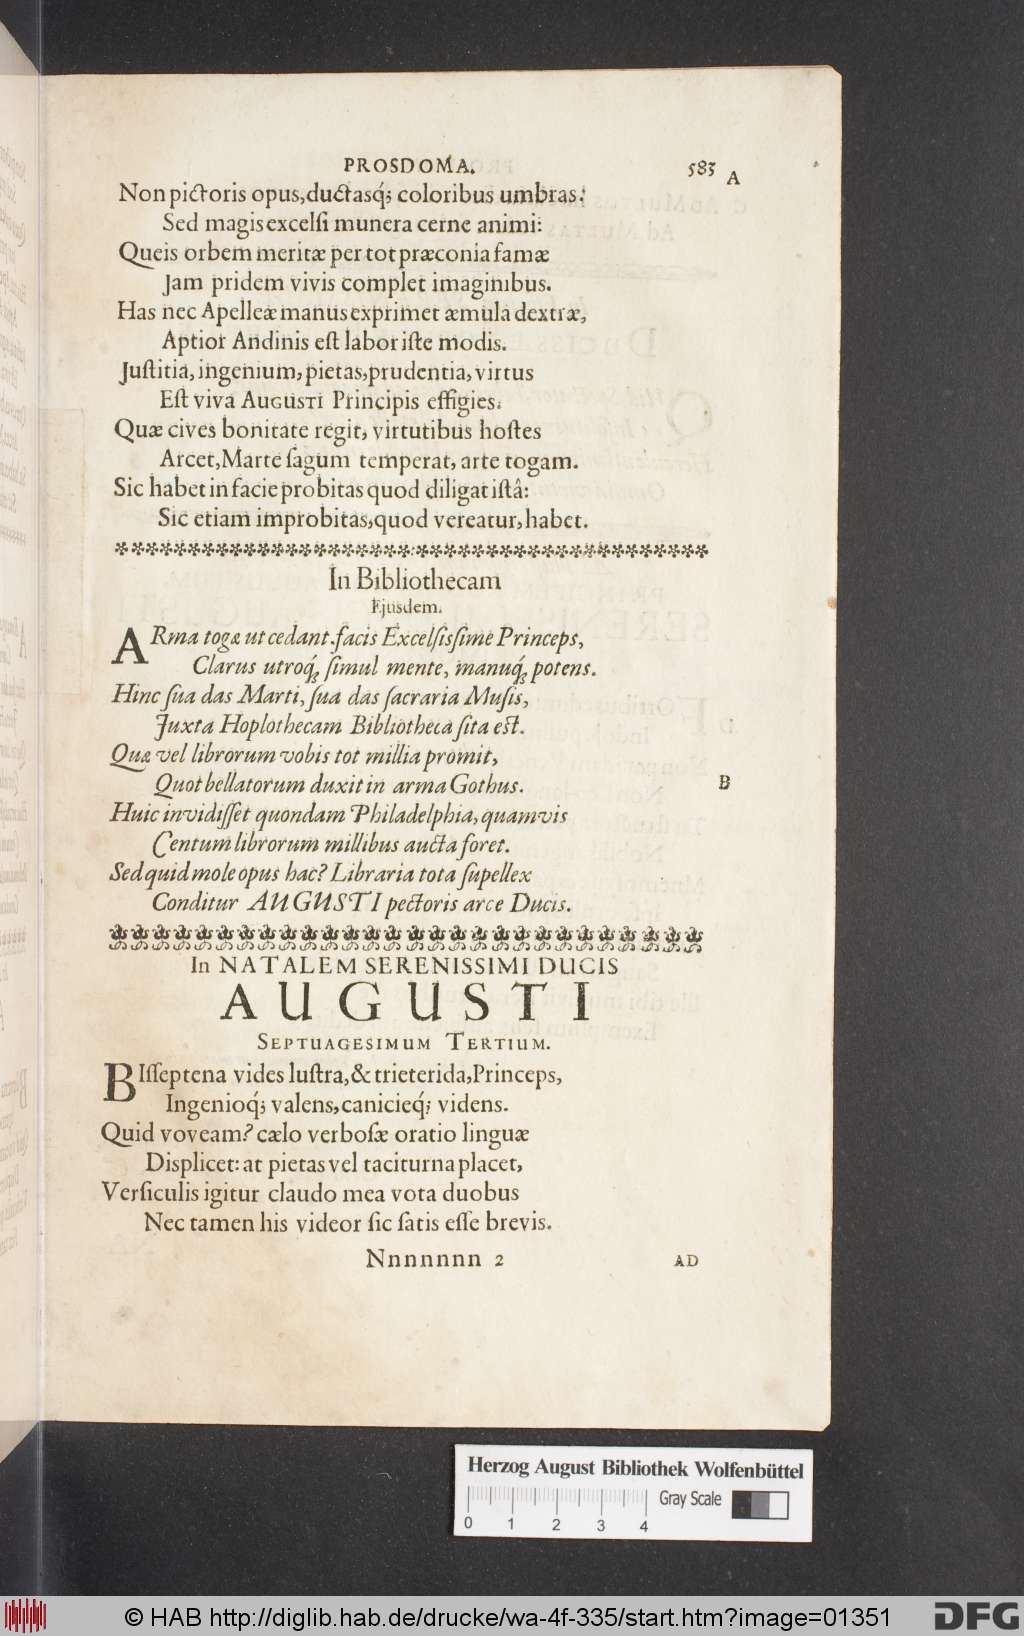 PROSDOMA. 583 A
Non pictoris opus, ductasq́; coloribus umbras:
Sed magis excelſi munera cerne animi:
Queis orbem meritæ per tot præconia famæ
Jam pridem vivis complet imaginibus.
Has nec Apelleæ manus exprimet æmula dextræ,
Aptior Andinis eſt labor iſte modis.
Juſtitia, ingenium, pietas, prudentia, virtus
Eſt viva AUGUSTI Principis effigies.
Quæ cives bonitate regit, virtutibus hoſtes
Arcet, Marte ſagum temperat, arte togam.
Sic habet in facie probitas quod diligat iſtâ:
Sic etiam improbitas, quod vereatur, habet.
In Bibliothecam
Ejusdem.
ARma togæ ut cedant facis Excelſisſime Princeps,
Clarus utroq́; ſimul mente, manuq́; potens.
Hinc ſua das Marti, ſua das ſacraria Muſis,
Juxta Hoplothecam Bibliotheca ſita eſt.
Quæ vel librorum vobis tot millia promit,
Quot bellatorum duxit in arma Gothus.
B
Huic invidiſſet quondam Philadelphia, quamvis
Centum librorum millibus aucta foret.
Sed quid mole opus hac? Libraria tota ſupellex
Conditur AUGUSTI pectoris arce Ducis.
In NATALEM SERENISSIMI DUCIS
AUGUSTI
SEPTUAGESIMUM TERTIUM.
BIſſeptena vides luſtra, & trieterida, Princeps,
Ingenioq́; valens, canicieq́; videns.
Quid voveam? cælo verboſæ oratio linguæ
Displicet: at pietas vel taciturna placet,
Verſiculis igitur claudo mea vota duobus
Nec tamen his videor ſic ſatis eſſe brevis.
Nnnnnnn 2 AD
Herzog August Bibliothek Wolfenbüttel
Gray Scale
0 1 2 3 4
© HAB http://diglib.hab.de/drucke/wa-4f-335/start.htm?image=01351
DFG